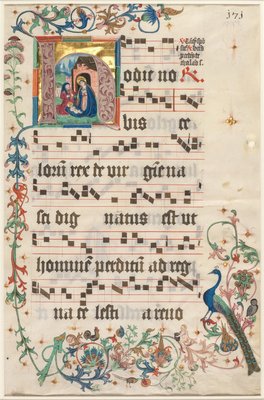 171
Hodie no
bis ce
lorū rex de virgīe na
sci dignatus est ut
hominē perditū ad reg
na celestia revo